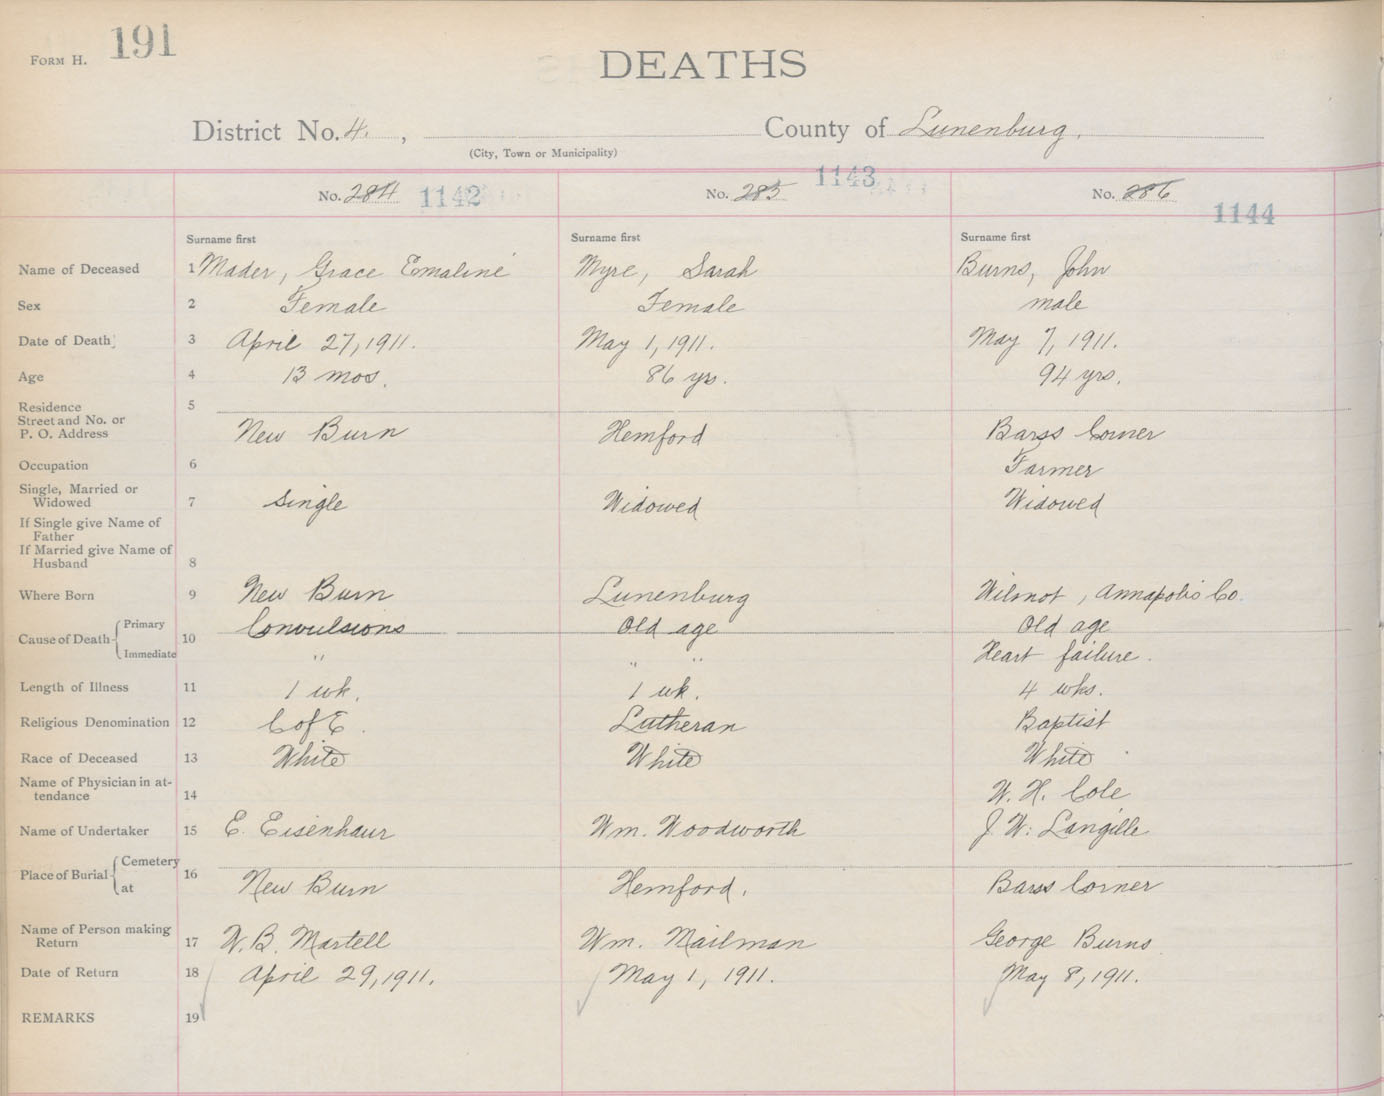 FORM H. 191
DEATHS
District No. 4. , County of Lunenburg.
(City, Town or Municipality)
No. 284 1142 No. 285 1143 No. 286 1144
Surname first Surname first Surname first
Name of Deceased 1 Mader, Grace Emaline Myre, Sarah Burns, John
Sex 2 Female Female male
Date of Death 3 April 27, 1911. May 1, 1911. May 7, 1911.
Age 4 13 mos. 86 yrs. 94 yrs.
Residence 5
Street and No. or
P. O. Address New Burn Hemford Barss Corner
Occupation 6 Farmer
Single, Married or
Widowed 7 Single Widowed Widowed
If Single give Name of
Father
If Married give Name of
Husband 8
Where Born 9 New Burn Lunenburg Wilmot, Annapolis Co.
Cause of Death 10 Primary Convulsions Old age Old age
Immediate " " " Heart failure.
Length of Illness 11 1 wk. 1 wk. 4 wks.
Religious Denomination 12 C of E. Lutheran Baptist
Race of Deceased 13 White White White
Name of Physician in at-
tendance 14 W. H. Cole
Name of Undertaker 15 E. Eisenhaur Wm. Woodworth J. W. Langille
Place of Burial 16 Cemetery
at New Burn Hemford. Barss Corner
Name of Person making
Return 17 W. B. Martell Wm. Mailman George Burns
Date of Return 18 April 29, 1911. May 1, 1911. May 8, 1911.
REMARKS 19